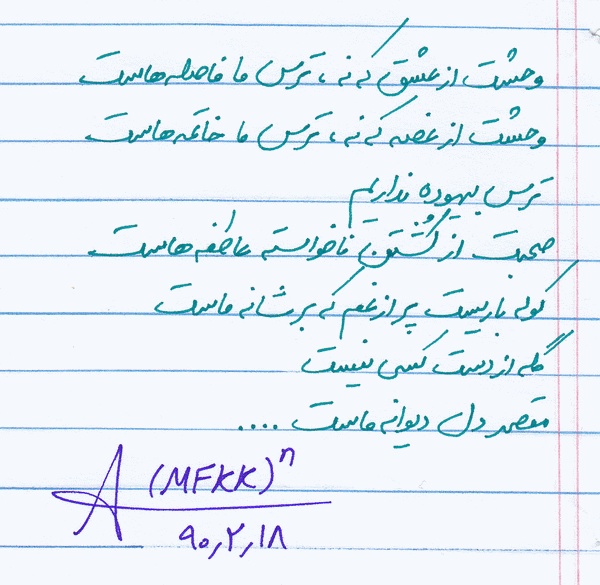 وحشت از عشق که نه، ترس ما فاصله هاست
وحشت از غصه که نه، ترس ما خاتمه هاست
ترس بیهوده نداریم
صحبت از کُشتنِ ناخواسته عاطفه هاست
کوله باریست پر از غم که بر شانه ماست
گله از دست کسی نیست
مقصر دل دیوانه ماست ....
A (MFKK)ⁿ
۹۰٫۲٫۱۸